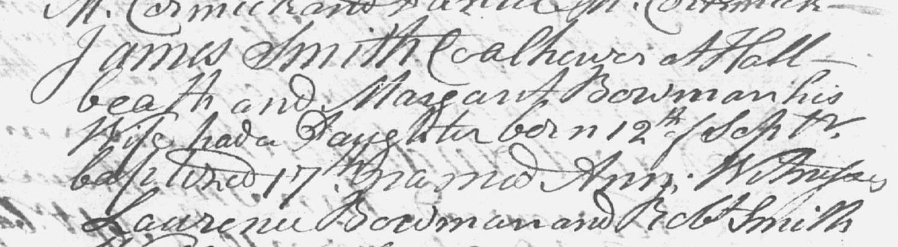 M. Cormick and Daniel M. Cormick
James Smith Coalhewer at Hall-
beath and Margaret Bowman his
Wife had a Daughter born 12th of Septr.
baptized 17th named Ann. Witnesses
Laurence Bowman and Robt Smith